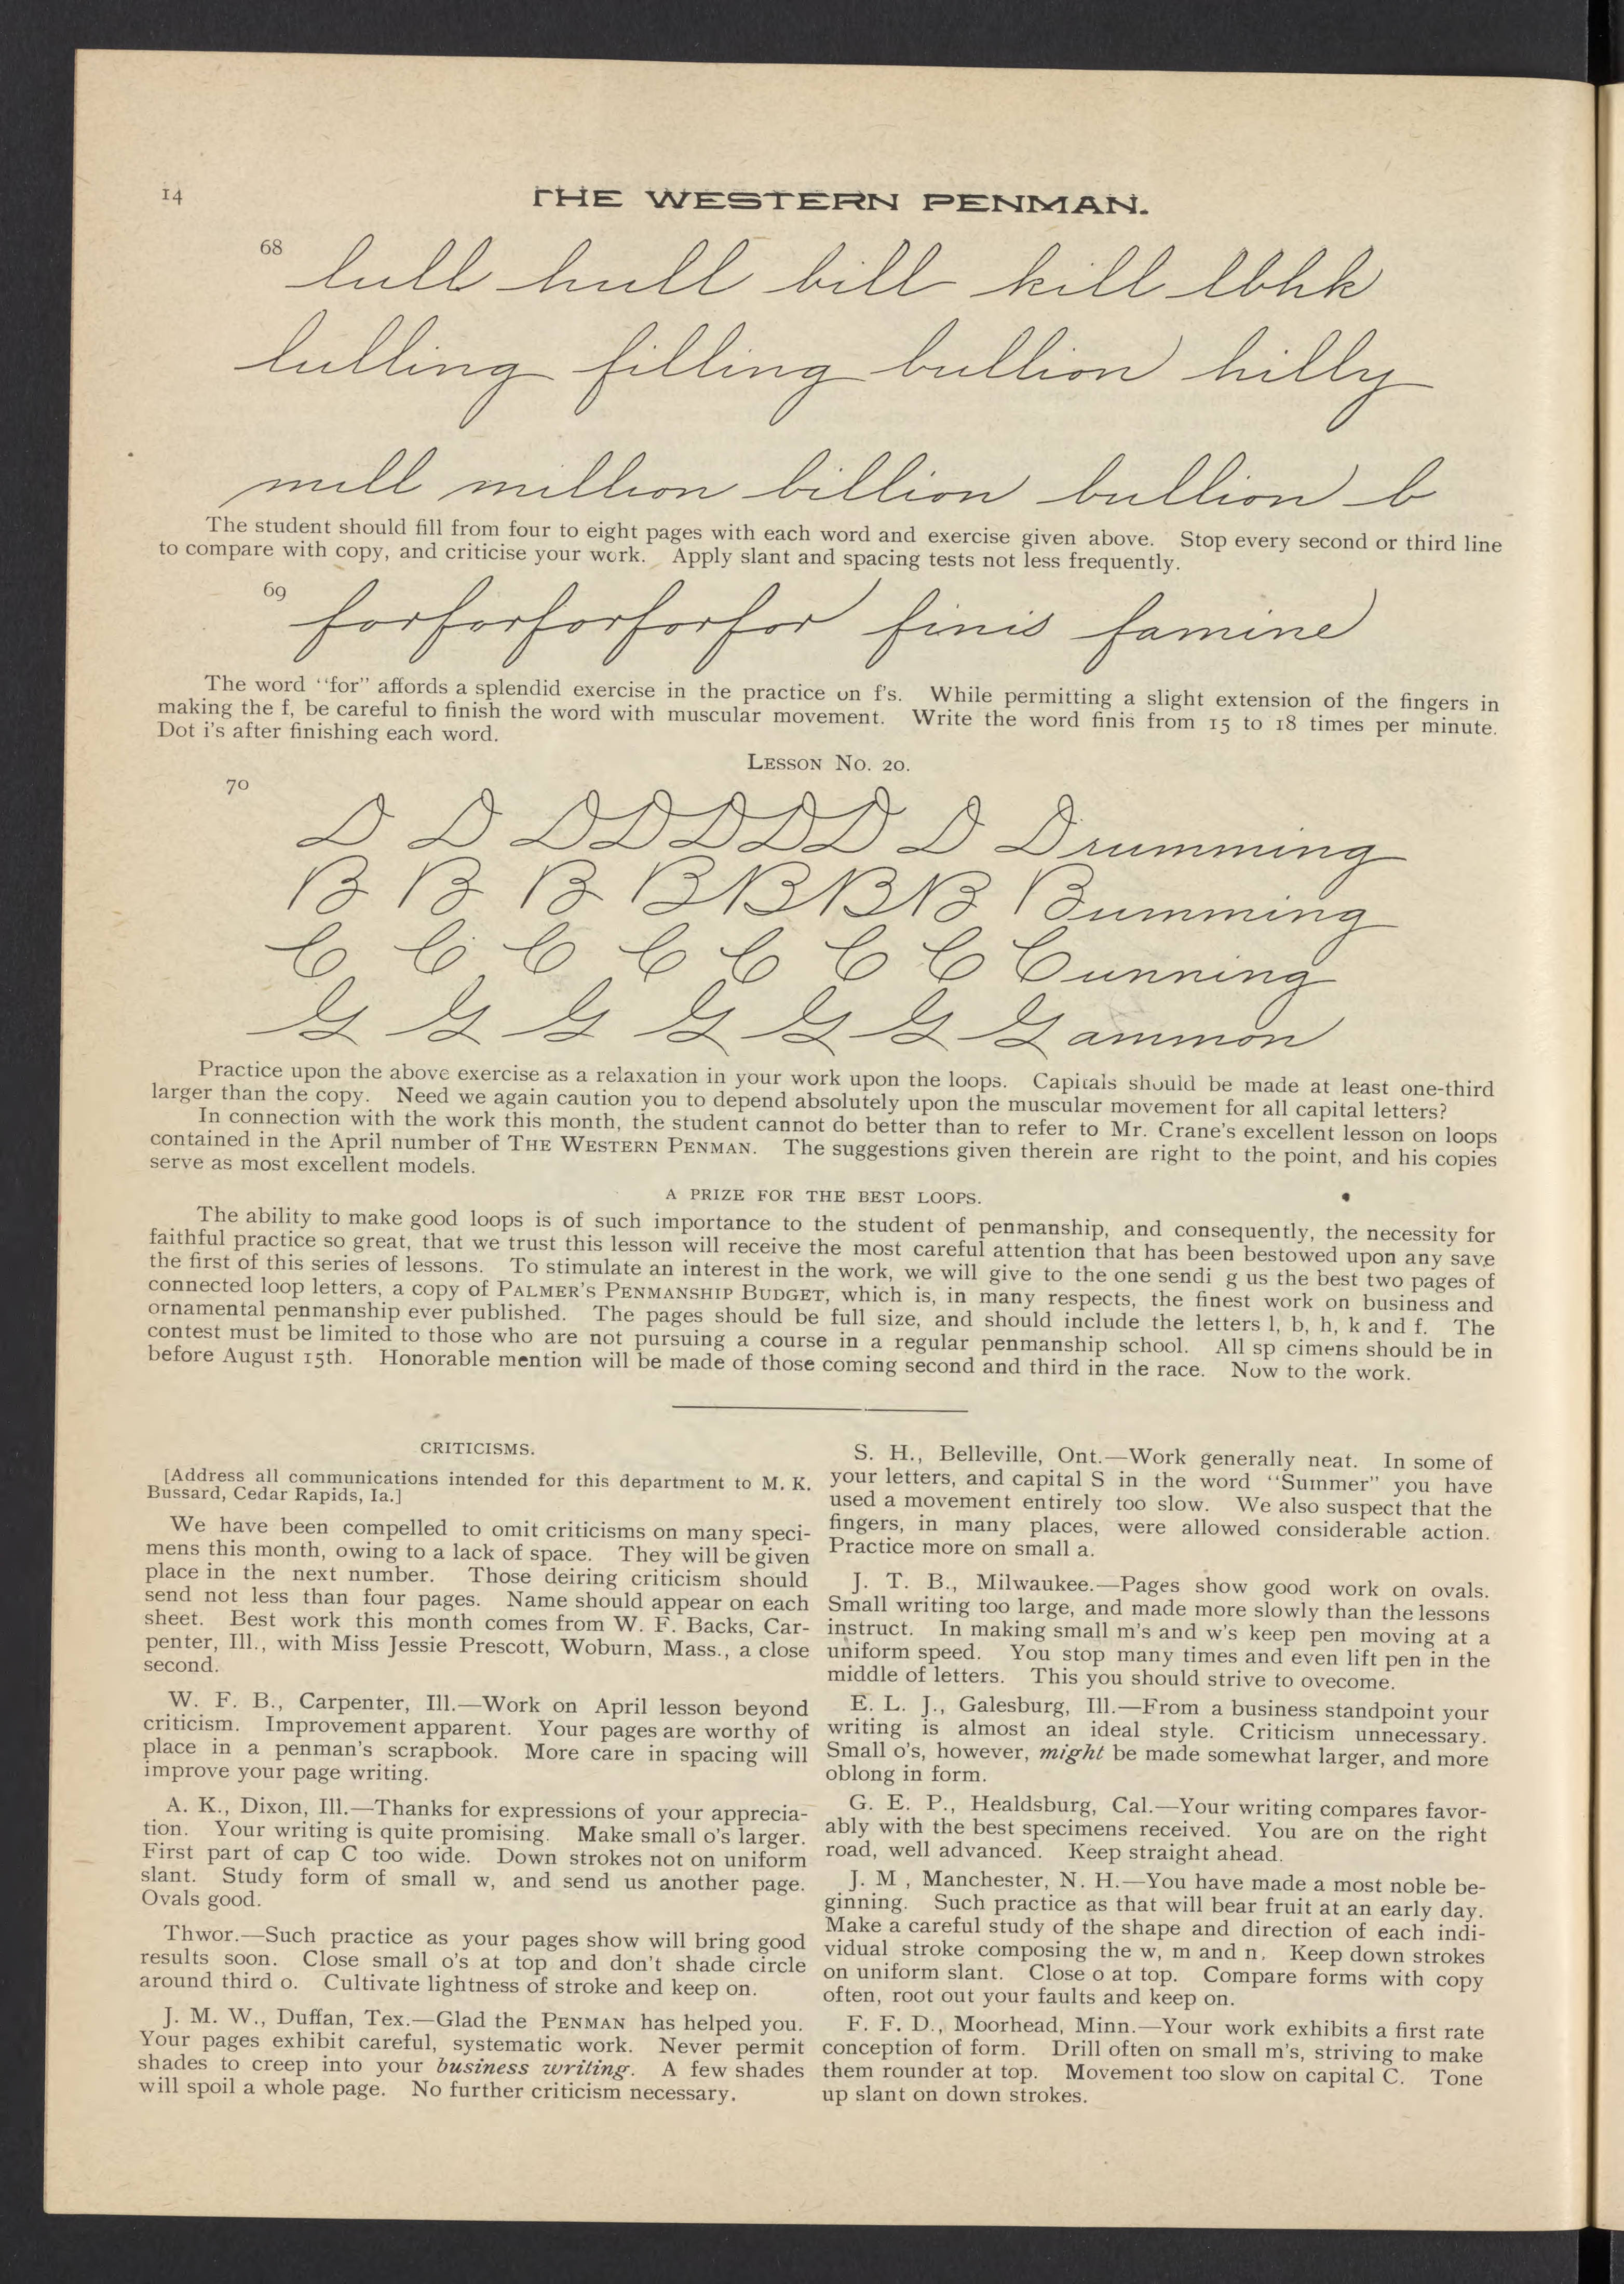 14
THE WESTERN PENMAN.
68
lull hull bill kill lbhk
lulling filling bullion hilly
mill million billion bullion b
The student should fill from four to eight pages with each word and exercise given above. Stop every second or third line
to compare with copy, and criticise your work. Apply slant and spacing tests not less frequently.
69
forforforforfor finis famine
The word "for" affords a splendid exercise in the practice on f's. While permitting a slight extension of the fingers in
making the f, be careful to finish the word with muscular movement. Write the word finis from 15 to 18 times per minute.
Dot i's after finishing each word.
LESSON NO. 20.
70
D D DDDDD D Drumming
B B B BBBB Bumming
C C C C C C C Cunning
G G G G G G Gammon
Practice upon the above exercise as a relaxation in your work upon the loops. Capitals should be made at least one-third
larger than the copy. Need we again caution you to depend absolutely upon the muscular movement for all capital letters?
In connection with the work this month, the student cannot do better than to refer to Mr. Crane's excellent lesson on loops
contained in the April number of THE WESTERN PENMAN. The suggestions given therein are right to the point, and his copies
serve as most excellent models.
A PRIZE FOR THE BEST LOOPS.
The ability to make good loops is of such importance to the student of penmanship, and consequently, the necessity for
faithful practice so great, that we trust this lesson will receive the most careful attention that has been bestowed upon any save
the first of this series of lessons. To stimulate an interest in the work, we will give to the one sendi g us the best two pages of
connected loop letters, a copy of PALMER'S PENMANSHIP BUDGET, which is, in many respects, the finest work on business and
ornamental penmanship ever published. The pages should be full size, and should include the letters l, b, h, k and f. The
contest must be limited to those who are not pursuing a course in a regular penmanship school. All sp cimens should be in
before August 15th. Honorable mention will be made of those coming second and third in the race. Now to the work.
CRITICISMS.
[Address all communications intended for this department to M. K.
Bussard, Cedar Rapids, Ia.]
We have been compelled to omit criticisms on many speci-
mens this month, owing to a lack of space. They will be given
place in the next number. Those deiring criticism should
send not less than four pages. Name should appear on each
sheet. Best work this month comes from W. F. Backs, Car-
penter, Ill., with Miss Jessie Prescott, Woburn, Mass., a close
second.
W. F. B., Carpenter, Ill.—Work on April lesson beyond
criticism. Improvement apparent. Your pages are worthy of
place in a penman's scrapbook. More care in spacing will
improve your page writing.
A. K., Dixon, Ill.—Thanks for expressions of your apprecia-
tion. Your writing is quite promising. Make small o's larger.
First part of cap C too wide. Down strokes not on uniform
slant. Study form of small w, and send us another page.
Ovals good.
Thwor.—Such practice as your pages show will bring good
results soon. Close small o's at top and don't shade circle
around third o. Cultivate lightness of stroke and keep on.
J. M. W., Duffan, Tex.—Glad the PENMAN has helped you.
Your pages exhibit careful, systematic work. Never permit
shades to creep into your business writing. A few shades
will spoil a whole page. No further criticism necessary.
S. H., Belleville, Ont.—Work generally neat. In some of
your letters, and capital S in the word "Summer" you have
used a movement entirely too slow. We also suspect that the
fingers, in many places, were allowed considerable action.
Practice more on small a.
J. T. B., Milwaukee.—Pages show good work on ovals.
Small writing too large, and made more slowly than the lessons
instruct. In making small m's and w's keep pen moving at a
uniform speed. You stop many times and even lift pen in the
middle of letters. This you should strive to ovecome.
E. L. J., Galesburg, Ill.—From a business standpoint your
writing is almost an ideal style. Criticism unnecessary.
Small o's, however, might be made somewhat larger, and more
oblong in form.
G. E. P., Healdsburg, Cal.—Your writing compares favor-
ably with the best specimens received. You are on the right
road, well advanced. Keep straight ahead.
J. M , Manchester, N. H.—You have made a most noble be-
ginning. Such practice as that will bear fruit at an early day.
Make a careful study of the shape and direction of each indi-
vidual stroke composing the w, m and n. Keep down strokes
on uniform slant. Close o at top. Compare forms with copy
often, root out your faults and keep on.
F. F. D., Moorhead, Minn.—Your work exhibits a first rate
conception of form. Drill often on small m's, striving to make
them rounder at top. Movement too slow on capital C. Tone
up slant on down strokes.